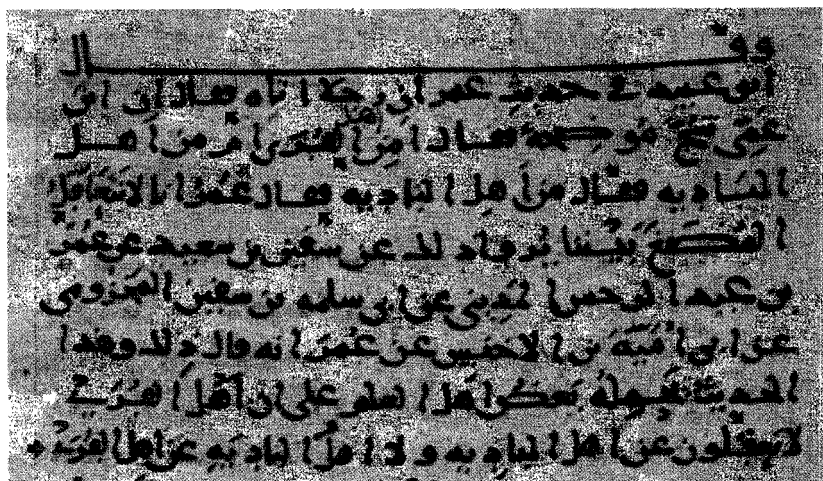 وقـــــال
ابو عبيد في حديث عمر ان رجلا اتاه فقال ان ابن
عمي شج موضحة فقال امن اهل القرى ام من اهل
البادية فقال من اهل البادية فقال عمر انا لا نتعاقل
المضغ بيننا يروى ذلك عن سفين بن سعيد عن عمر
بن عبد الرحمن المديني عن ابي سلمه بن سفين المخزومي
عن ابي امية بن الاخنس عن عمر انه قال ذلك وهذا
الحديث يحمله بعض اهل العلم على ان اهل القرى
لا يعقلون عن اهل البادية ولا اهل البادية عن اهل القرى